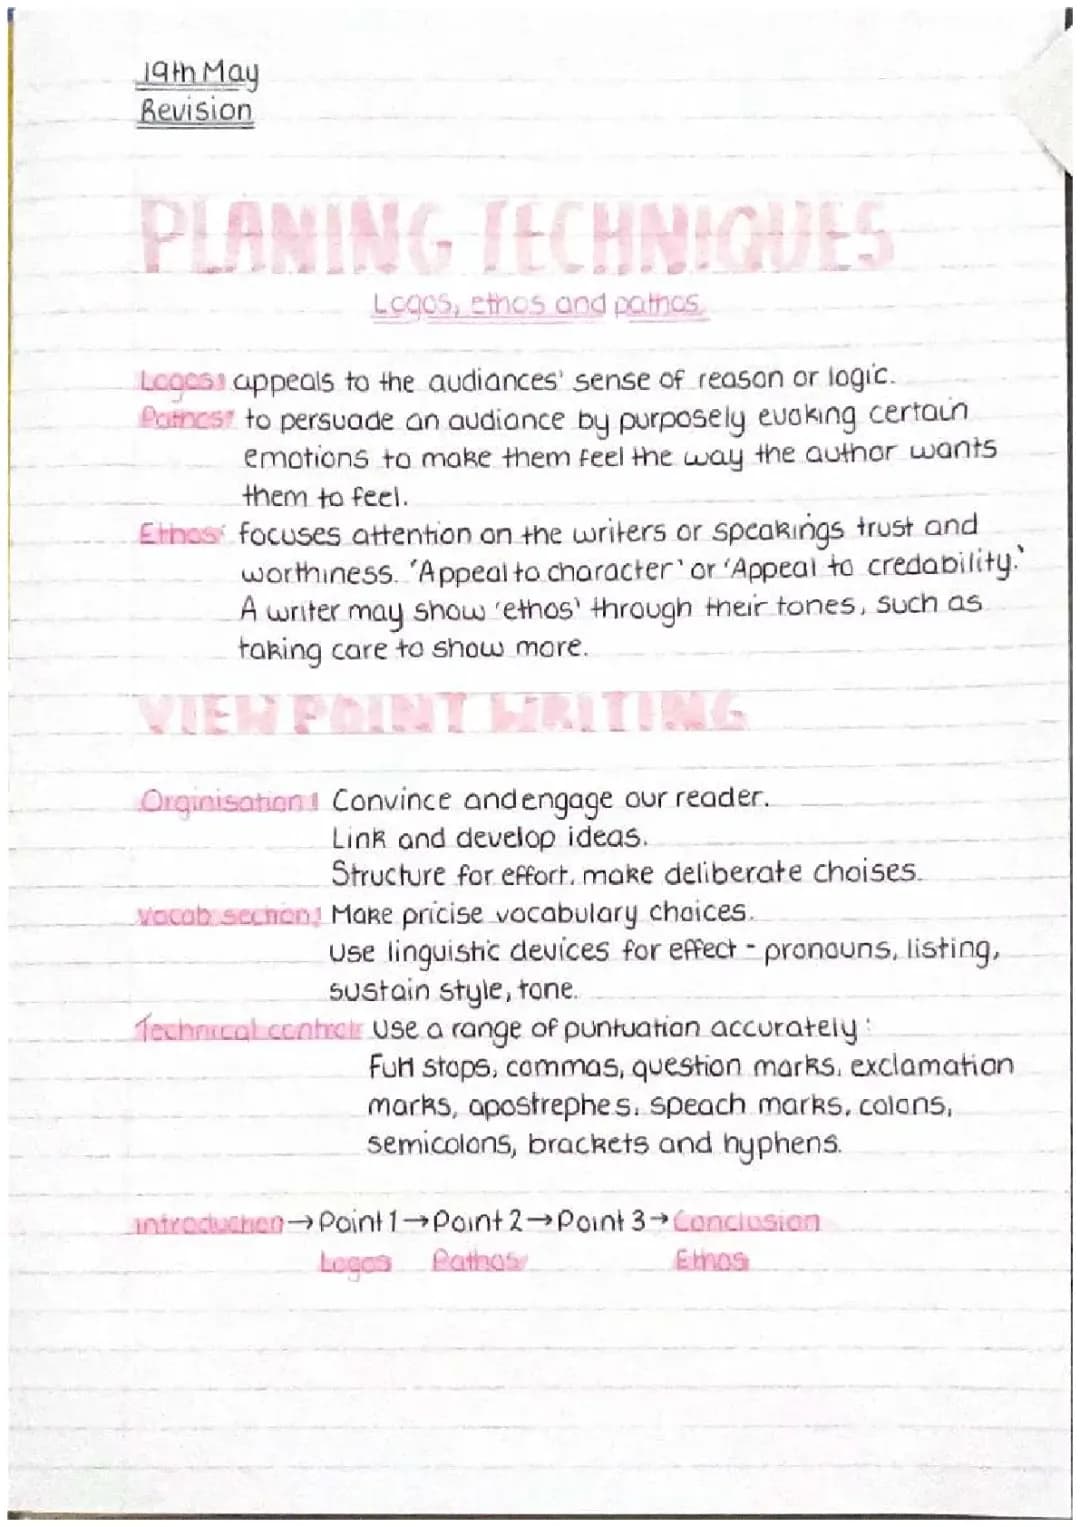 19th May
Revision
PLANING TECHNIQUES
Logos, ethos and pathos.
Logos: appeals to the audiances' sense of reason or logic.
Pathos: to persuade an audiance by purposely evoking certain
emotions to make them feel the way the author wants
them to feel.
Ethos: focuses attention on the writers or speakings trust and
worthiness. 'Appeal to character' or 'Appeal to credability.'
A writer may show 'ethos' through their tones, such as
taking care to show more.
VIEW POINT WRITING
Orginisation: Convince and engage our reader.
Link and develop ideas.
Structure for effort, make deliberate choises.
Vocab section: Make pricise vocabulary choices.
Use linguistic devices for effect - pronouns, listing,
sustain style, tone.
Technical control: Use a range of puntuation accurately:
Full stops, commas, question marks, exclamation
marks, apostrephes, speach marks, colons,
semicolons, brackets and hyphens.
introduction → Point 1 → Point 2 → Point 3 → Conclusion
Logos Pathos Ethos